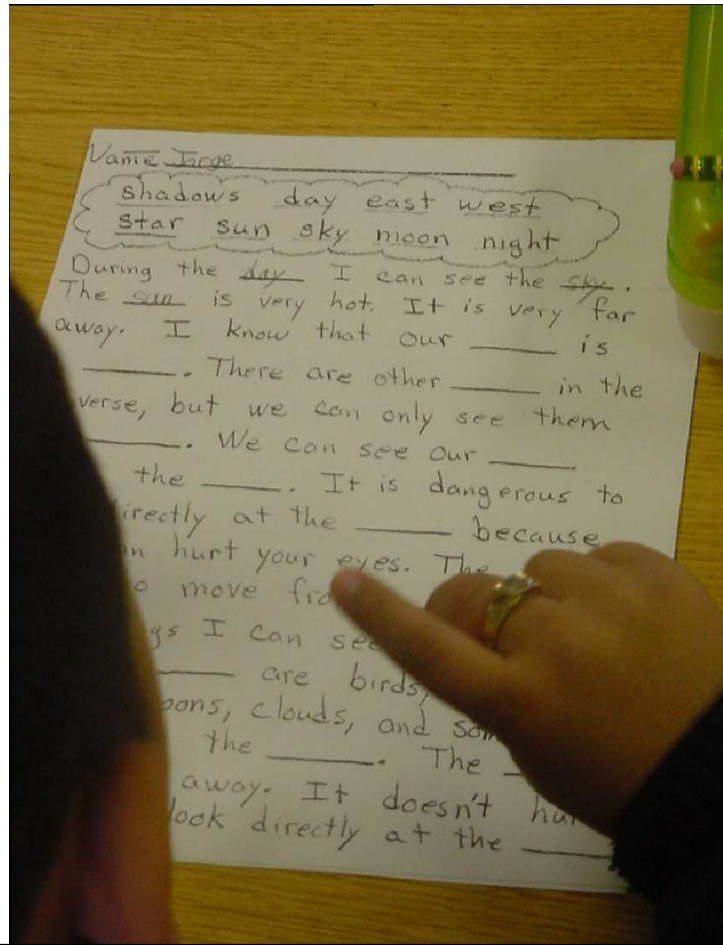 Name Jorge
shadows day east west
star sun sky moon night
During the day I can see the sky.
The sun is very hot. It is very far
away. I know that our ____ is
____. There are other ____ in the
verse, but we can only see them
____. We can see our ____
the ____. It is dangerous to
directly at the ____ because
hurt your eyes. The
move
I can see
____ are birds,
clouds, and
the ____. The
away. It doesn't
look directly at the ____